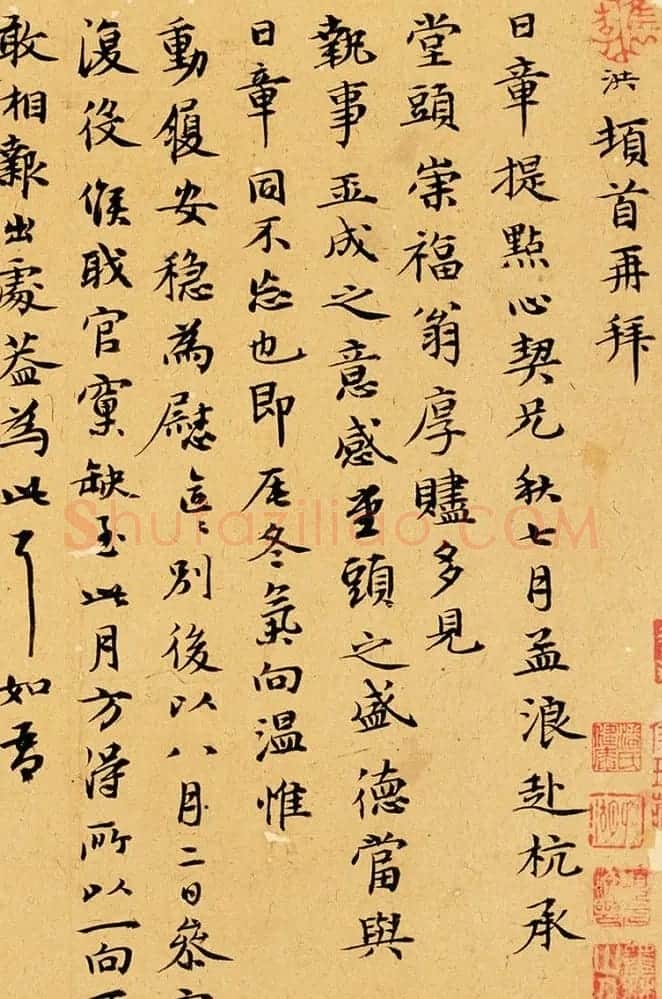 洪頓首再拜
日章提點心契兄秋七月孟浪赴杭承
堂頭崇福翁厚贐多見
執事玉成之意感堂頭之盛德當與
日章同不忘也即辰冬氣向溫惟
動履安穩為慰別後以八月二日參
復役候職官窠缺至此月方得所以一向
敢相報出處蓋為此耳如吾
Shufaziliao.COM